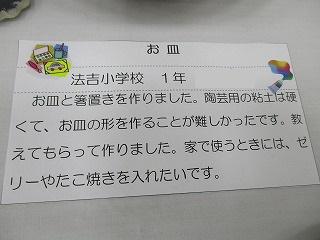 お皿
法吉小学校　１年
お皿と箸置きを作りました。陶芸用の粘土は硬
くて、お皿の形を作ることが難しかったです。教
えてもらって作りました。家で使うときには、ゼ
リーやたこ焼きを入れたいです。